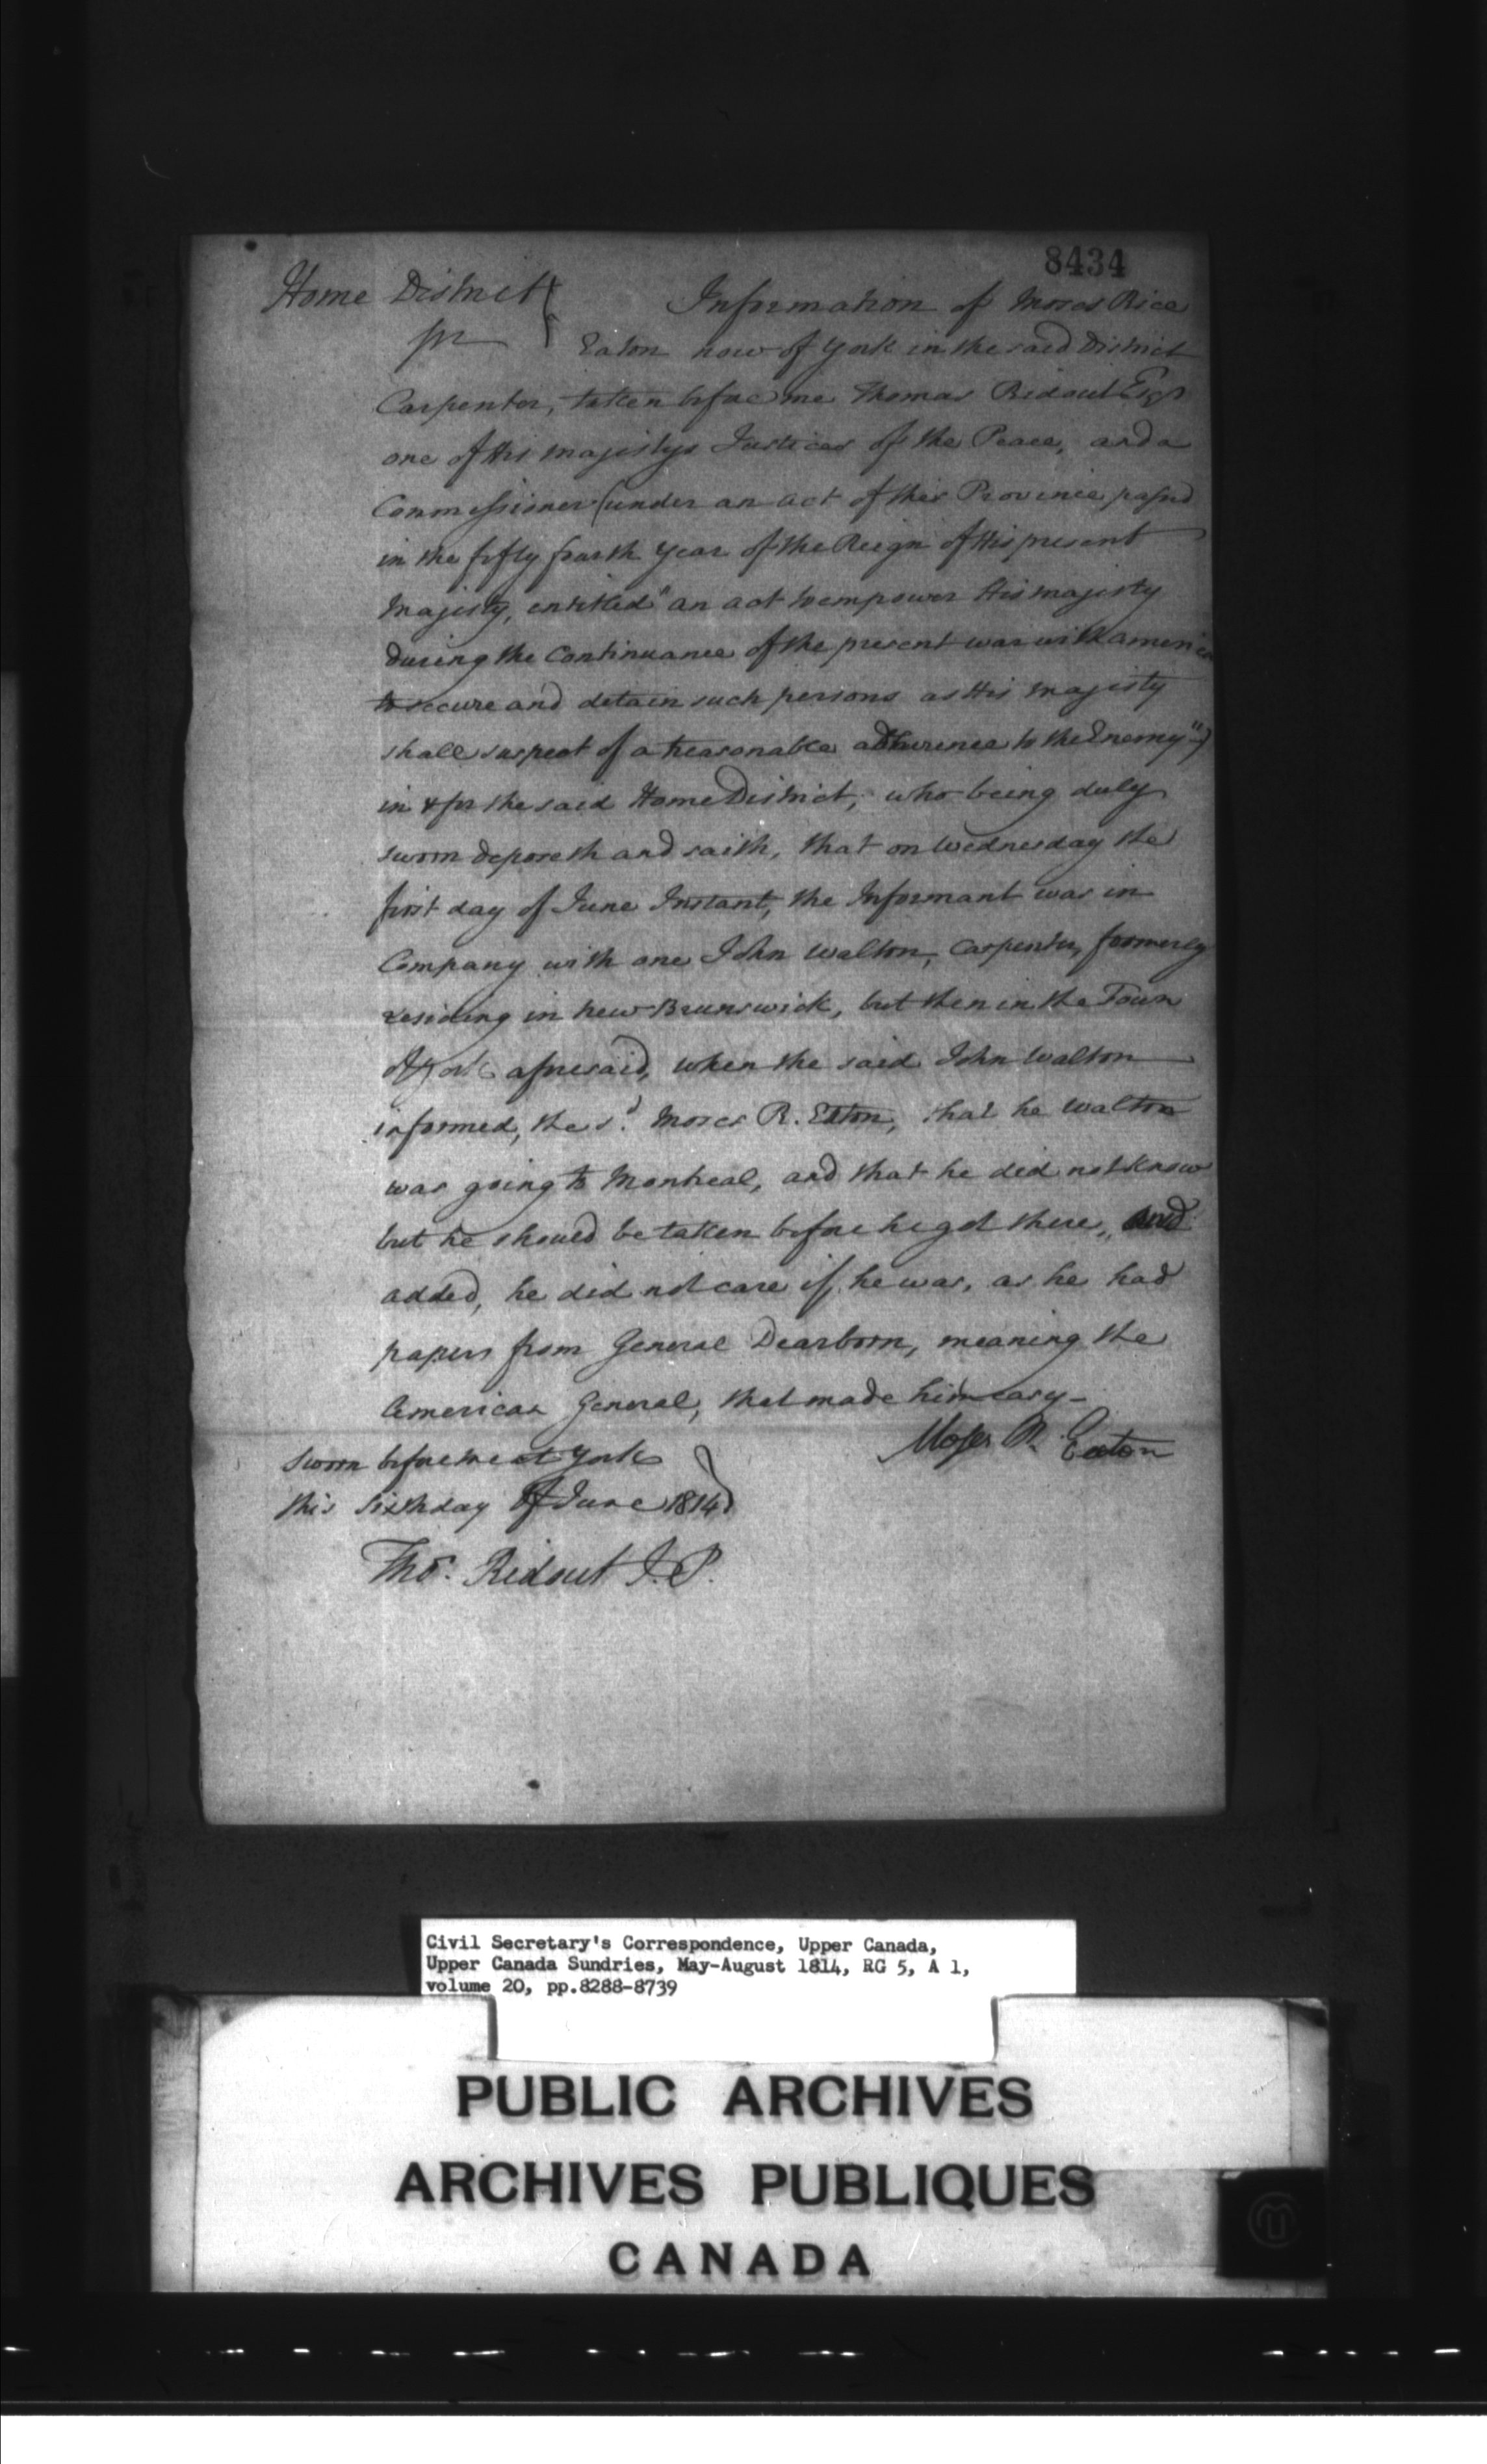 8434
Home District } Information of Moses Rice
ss Eaton now of York in the said District
Carpenter, taken before me Thomas Ridout Esqr
one of His majestys Justices of the Peace, and a
Commissioner (under an act of this Province passed
in the fifty fourth year of the Reign of His present
Majesty, entitled "an act to empower His majesty
during the Continuance of the present war with america
to secure and detain such persons as His majesty
shall suspect of a treasonable adherence to the Enemy")
in & for the said Home District, who being duly
sworn deposeth and saith, that on Wednesday the
first day of June Instant, the Informant was in
Company with one John Walton, Carpenter, formerly
residing in new Brunswick, but then in the Town
of York aforesaid, when the said John Walton
informed, the sd. Moses R. Eaton, that he Walton
was going to Montreal, and that he did not know
but he should be taken before he got there, and
added, he did not care if he was, as he had
papers from General Dearborn, meaning the
American General, that made him easy -
Moses R. Eaton
Sworn before me at York
this sixth day of June 1814
Thos. Ridout J.P.
Civil Secretary's Correspondence, Upper Canada,
Upper Canada Sundries, May-August 1814, RG 5, A 1,
volume 20, pp.8288-8739
PUBLIC ARCHIVES
ARCHIVES PUBLIQUES
CANADA